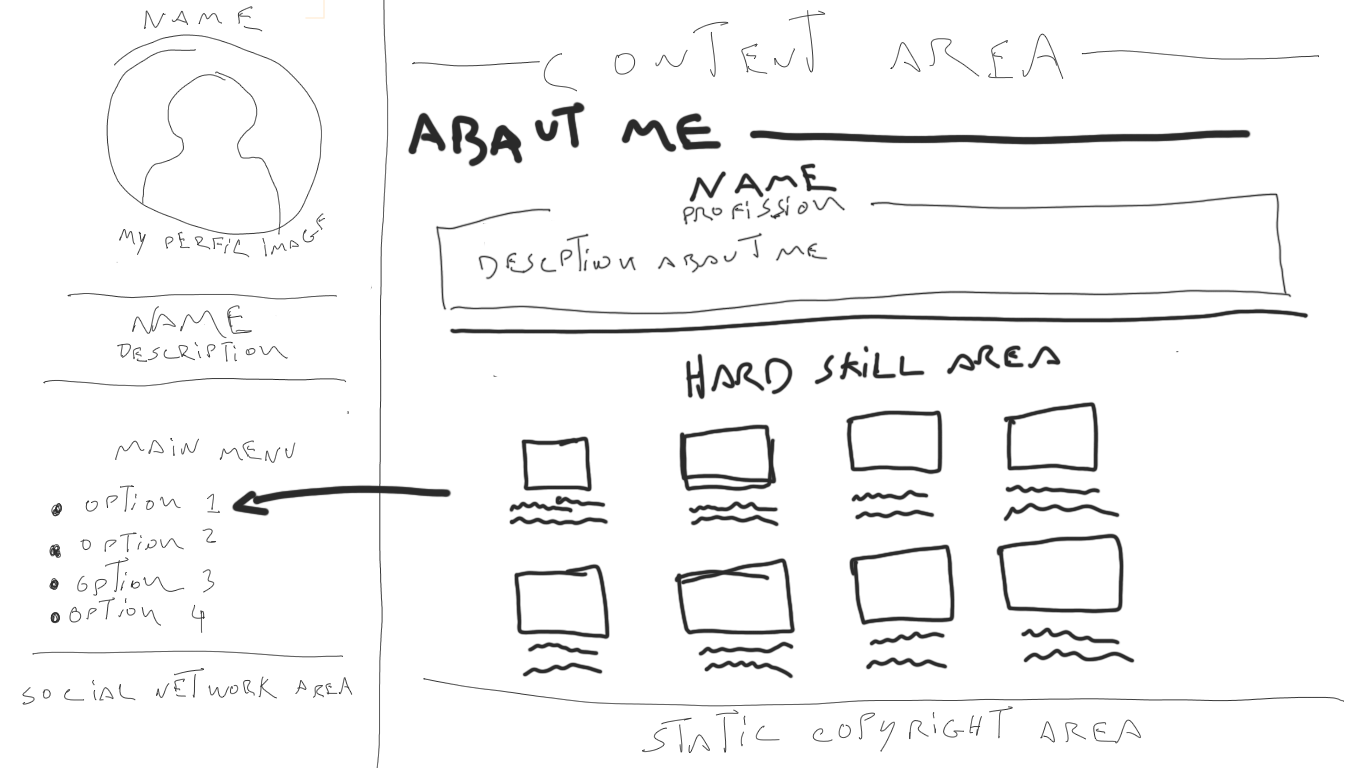 NAME
MY PERFIL IMAGE
NAME
DESCRIPTION
MAIN MENU
OPTION 1
OPTION 2
OPTION 3
OPTION 4
SOCIAL NETWORK AREA
CONTENT AREA
ABAUT ME
NAME
PROFISSION
DESCPTION ABAUT ME
HARD SKILL AREA
STATIC COPYRIGHT AREA